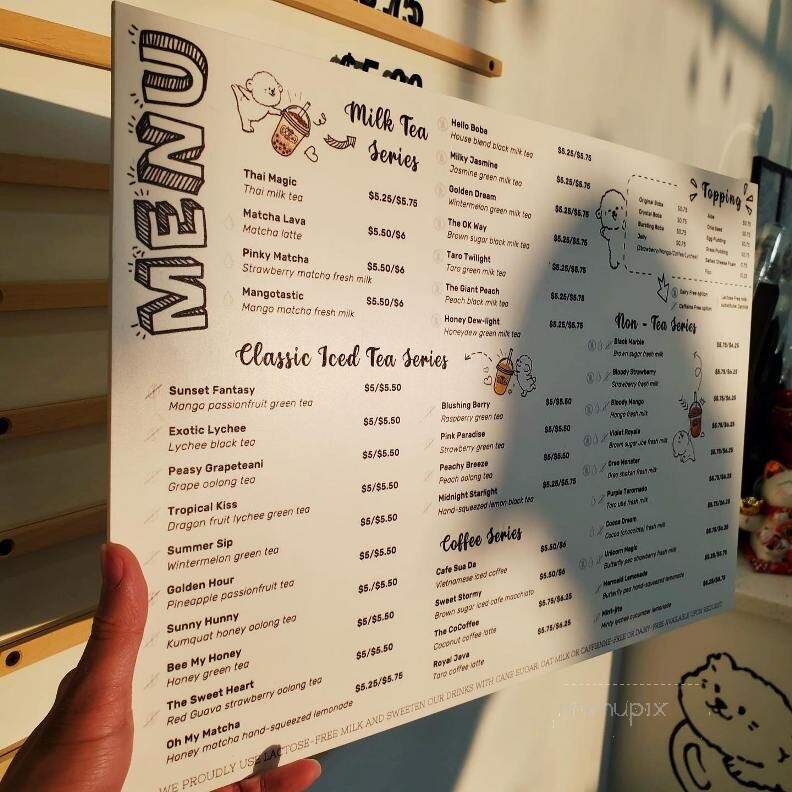 MENU
Milk Tea
Series
Thai Magic
Thai milk tea
$5.25/$5.75
Matcha Lava
Matcha latte
$5.50/$6
Pinky Matcha
Strawberry matcha fresh milk
$5.50/$6
Mangotastic
Mango matcha fresh milk
$5.50/$6
Hello Boba
House blend black milk tea
$5.25/$5.75
Milky Jasmine
Jasmine green milk tea
$5.25/$5.75
Golden Dream
Wintermelon green milk tea
$5.25/$5.75
The OK Way
Brown sugar black milk tea
$5.25/$5.75
Taro Twilight
Taro green milk tea
$5.25/$5.75
The Giant Peach
Peach black milk tea
$5.25/$5.75
Honey Dew-light
Honeydew green milk tea
$5.25/$5.75
Topping
Original Boba $0.75
Crystal Boba $0.75
Bursting Boba $0.75
Jelly $0.75
(Strawberry/Mango/Coffee/Lychee)
Aloe
Chia Seed
Egg Pudding
Salted Cheese Foam
Dairy Free option
Caffeine Free option
Classic Iced Tea Series
Sunset Fantasy
Mango passionfruit green tea
$5/$5.50
Exotic Lychee
Lychee black tea
$5/$5.50
Peasy Grapeteani
Grape oolong tea
$5/$5.50
Tropical Kiss
Dragon fruit lychee green tea
$5/$5.50
Summer Sip
Wintermelon green tea
$5/$5.50
Golden Hour
Pineapple passionfruit tea
$5./$5.50
Sunny Hunny
Kumquat honey oolong tea
$5/$5.50
Bee My Honey
Honey green tea
$5/$5.50
The Sweet Heart
Red Guava strawberry oolong tea
$5.25/$5.75
Oh My Matcha
Honey matcha hand-squeezed lemonade
Blushing Berry
Raspberry green tea
$5/$5.50
Pink Paradise
Strawberry green tea
$5/$5.50
Peachy Breeze
Peach oolong tea
$5/$5.50
Midnight Starlight
Hand-squeezed lemon black tea
$5.25/$5.75
Coffee Series
Cafe Sua Da
Vietnamese iced coffee
$5.50/$6
Sweet Stormy
Brown sugar iced cafe macchiato
$5.50/$6
The CoCoffee
Coconut coffee latte
$5.75/$6.25
Royal Java
Taro coffee latte
$5.75/$6.25
Non - Tea Series
Black Marble
Brown sugar fresh milk
$5.75/$6.25
Bloody Strawberry
Strawberry fresh milk
$5.75/$6.25
Bloody Mango
Mango fresh milk
$5.75/$6.25
Violet Royale
Brown sugar ube fresh milk
$5.75/$6.25
Oreo Monster
Oreo shaken fresh milk
$5.75/$6.25
Purple Tarornado
Taro ube fresh milk
$5.75/$6.25
Cocoa Dream
Cocoa (chocolate) fresh milk
$5.75/$6.25
Unicorn Magic
Butterfly pea strawberry fresh milk
$5.75/$6.25
Mermaid Lemonade
Butterfly pea hand-squeezed lemonade
$5.25/$5.75
Mint-jito
Minty lychee cucumber lemonade
$5.25/$5.75
WE PROUDLY USE LACTOSE-FREE MILK AND SWEETEN OUR DRINKS WITH CANE SUGAR. OAT MILK OR CAFFIENNE-FREE OR DAIRY-FREE AVAILABLE UPON REQUEST.
menupix